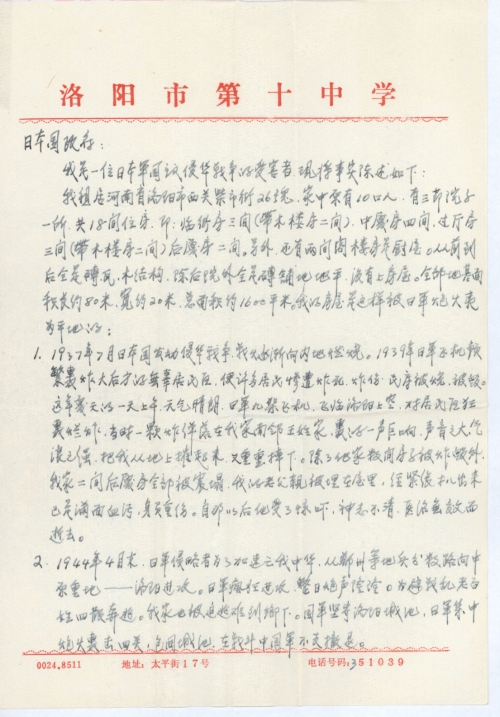 洛阳市第十中学
日本国政府:
我是一位日本军国主义侵华战争的受害者,现将事实陈述如下:
我祖居河南省洛阳市西关柴市街26号,家中原有10口人,有三节院子
一所,共18间住房,即:临街房三间(带木楼房二间),中厦房四间,过厅房
三间(带木楼房二间)后厦房二间。另外,还有两间阁楼房是厨屋。从前到
后全是砖瓦、木结构,除后院外全是砖铺地地平,
全部地基面
积长约80米,宽约20米,总面积约1600平米。我的房屋是这样被日军炮火轰
为平地的:
1. 1937年7月日本国发动侵华战争,战火逐渐向内地燃烧。1939年日军飞机频
繁轰炸大后方的无辜居民区,使许多居民惨遭炸死、炸伤,民房被烧,被毁。
这年夏天的一天上午,天气晴朗,日军九架飞机,飞临洛阳上空,对居民区狂
轰烂炸,当时一颗炸弹落在我家南邻王姓家,轰的一声巨响,声音之大气
浪之强,把我从地上推起来又重重摔下。除了他家数间房子被炸毁外,
我家二间后厦房全部被震塌,我的老父亲被埋在屋里,经紧急扒出来
已是满面血污,身负重伤。自那以后他受了惊吓,神志不清,医治无效而
逝去。
2. 1944年4月末,日军侵略者为了加速灭我中华,从郑州等地兵分数路向中
原重地——洛阳进攻。日军疯狂进攻,整日炮声隆隆。为避战乱老百
姓四散奔逃。我家也被迫逃难到乡下。国军坚守洛阳城池,日军集中
炮火轰击四关,包围城池,在战斗中国军不支撤退。
0024.8511 地址:太平街17号 电话号码:351039